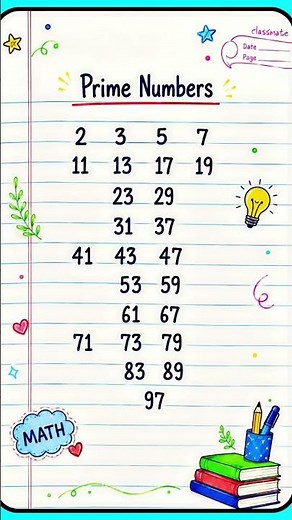 classmate
Date
Page
Prime Numbers
2 3 5 7
11 13 17 19
23 29
31 37
41 43 47
53 59
61 67
71 73 79
83 89
97
MATH